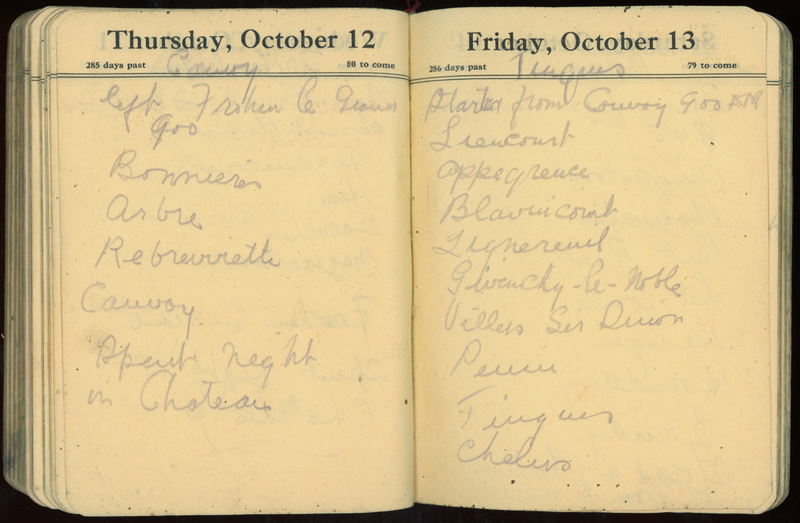 Thursday, October 12
285 days past 80 to come
Canvoy
Left Frohen le Grand
900
Bonnieres
Arbre
Rebreuviette
Canvoy
Spent night
in Chateau
Friday, October 13
286 days past 79 to come
Tinques
Started from Convoy 900 AM
Liencourt
Blavincourt
Lignereuil
Givenchy-le-Noble
Villers Sir Simon
Penin
Tinques
Chelers